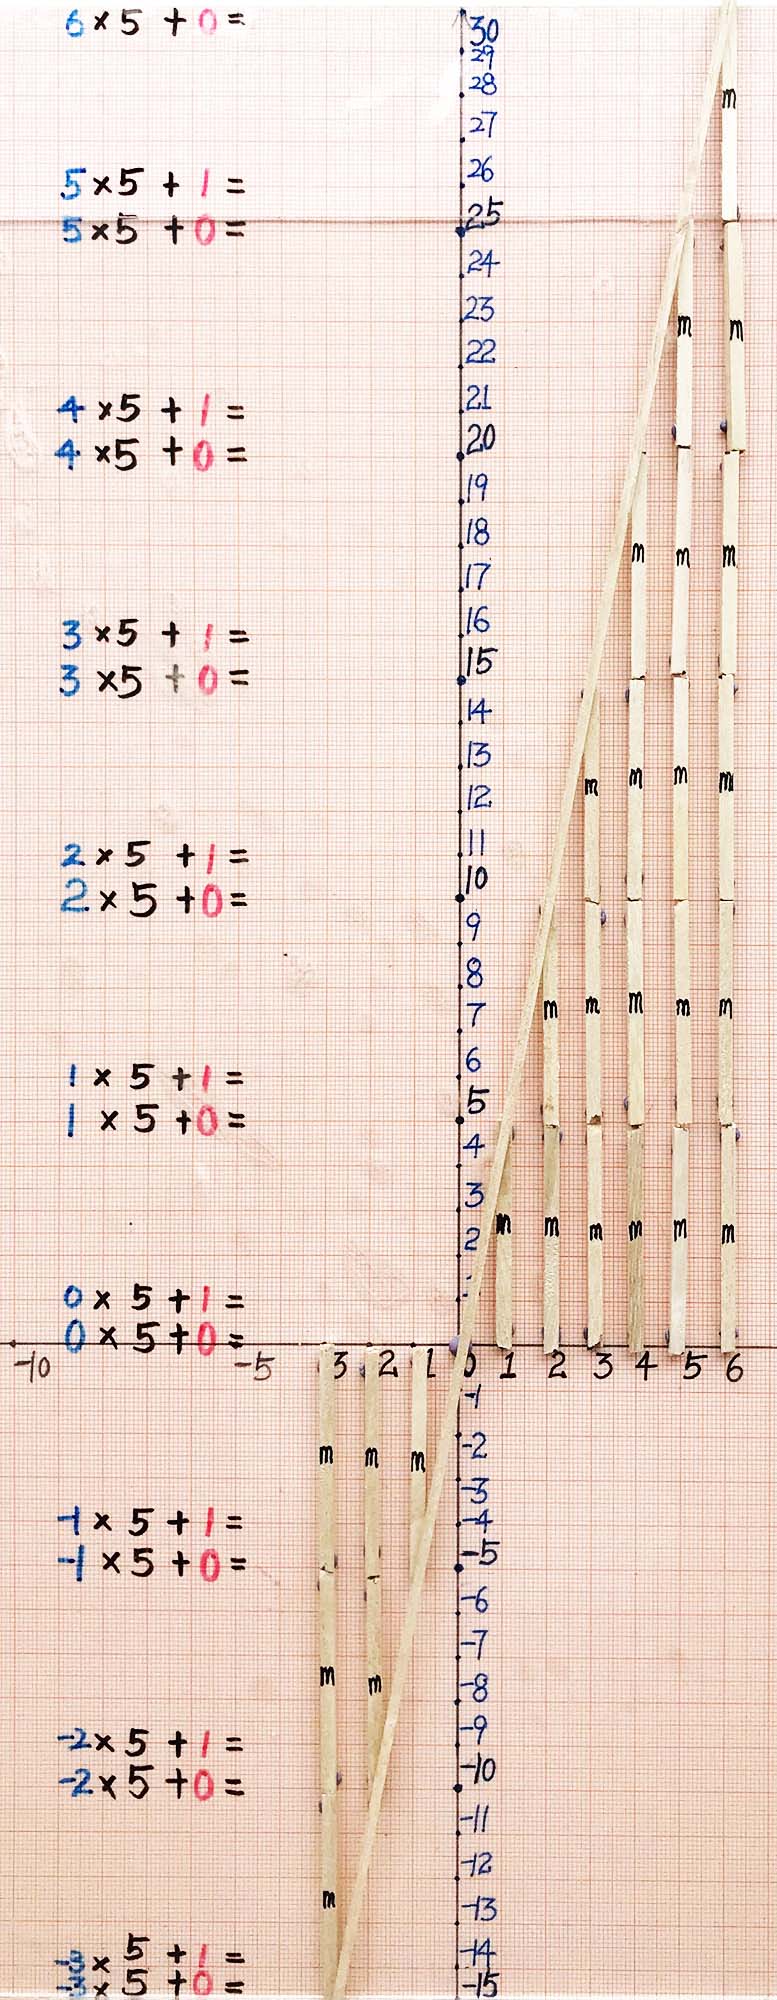 6 × 5 + 0 =
5 × 5 + 1 =
5 × 5 + 0 =
4 × 5 + 1 =
4 × 5 + 0 =
3 × 5 + 1 =
3 × 5 + 0 =
2 × 5 + 1 =
2 × 5 + 0 =
1 × 5 + 1 =
1 × 5 + 0 =
0 × 5 + 1 =
0 × 5 + 0 =
-1 × 5 + 1 =
-1 × 5 + 0 =
-2 × 5 + 1 =
-2 × 5 + 0 =
-3 × 5 + 1 =
-3 × 5 + 0 =
30
29
28
27
26
25
24
23
22
21
20
19
18
17
16
15
14
13
12
11
10
9
8
7
6
5
4
3
2
-10 -5 3 2 1 0 1 2 3 4 5 6
-1
-2
-3
-4
-5
-6
-7
-8
-9
-10
-11
-12
-13
-14
-15
m
m m
m m m
m m m m
m m m m m
m m m m m m
m m m
m m
m